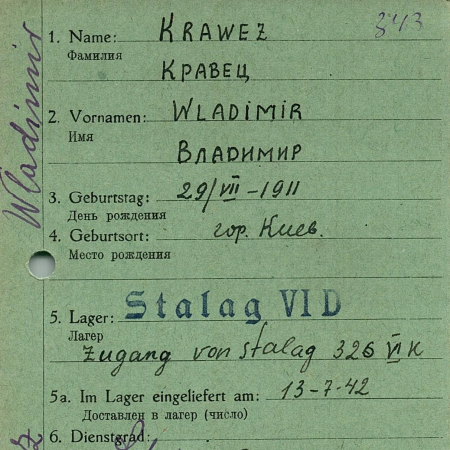 843
1. Name: KRAWEZ
Фамилия
КРАВЕЦ
2. Vornamen: WLADIMIR
Имя
ВЛАДИМИР
3. Geburtstag: 29/VII - 1911
День рождения
4. Geburtsort: гор. Киев.
Место рождения
5. Lager: Stalag VI D
Лагер
Zugang von Stalag 326 VI K
5a. Im Lager eingeliefert am: 13-7-42
Доставлен в лагер (число)
6. Dienstgrad:
Wladimir